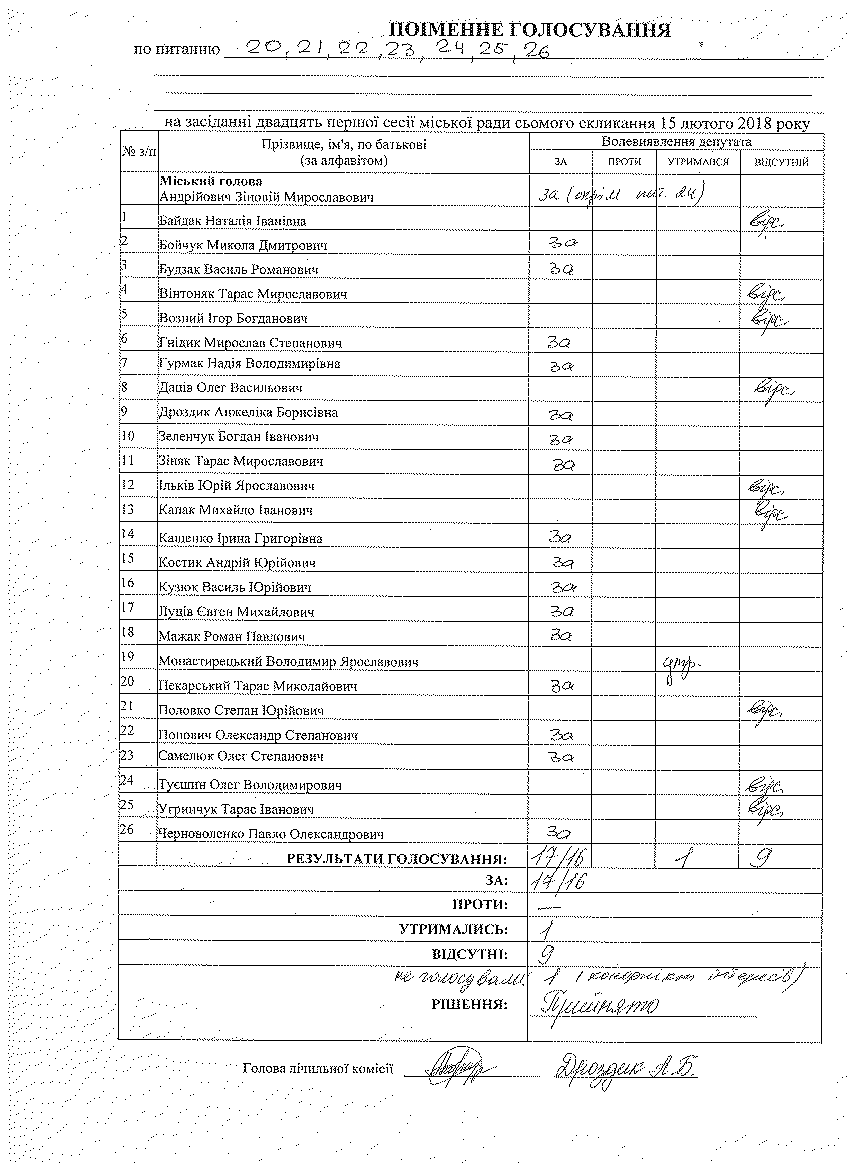 ПОІМЕННЕ ГОЛОСУВАННЯ
по питанню 20, 21, 22, 23, 24, 25, 26
на засіданні двадцять першої сесії міської ради сьомого скликання 15 лютого 2018 року
№ з/п Прізвище, ім'я, по батькові (за алфавітом) Волевиявлення депутата
ЗА ПРОТИ УТРИМАВСЯ ВІДСУТНІЙ
Міський голова
Андрійович Зіновій Мирославович за (окрім пит. 24)
1 Байдак Наталія Іванівна відс.
2 Бойчук Микола Дмитрович за
3 Будзак Василь Романович за
4 Вінтоняк Тарас Мирославович відс.
5 Возний Ігор Богданович відс.
6 Гнідик Мирослав Степанович за
7 Гурмак Надія Володимирівна за
8 Даців Олег Васильович відс.
9 Дроздик Анжеліка Борисівна за
10 Зеленчук Богдан Іванович за
11 Зіняк Тарас Мирославович за
12 Ільків Юрій Ярославович відс.
13 Капак Михайло Іванович відс.
14 Кащенко Ірина Григорівна за
15 Костик Андрій Юрійович за
16 Кузюк Василь Юрійович за
17 Луців Євген Михайлович за
18 Мажак Роман Павлович за
19 Монастирецький Володимир Ярославович утр.
20 Пекарський Тарас Миколайович за
21 Половко Степан Юрійович відс.
22 Попович Олександр Степанович за
23 Самелюк Олег Степанович за
24 Туєшин Олег Володимирович відс.
25 Угринчук Тарас Іванович відс.
26 Черноволенко Павло Олександрович за
РЕЗУЛЬТАТИ ГОЛОСУВАННЯ: 17/16 1 9
ЗА: 17/16
ПРОТИ: —
УТРИМАЛИСЬ: 1
ВІДСУТНІ: 9
не голосували: 1 (конфлікт інтересів)
РІШЕННЯ: Прийнято
Голова лічильної комісії Дроздик А.Б.